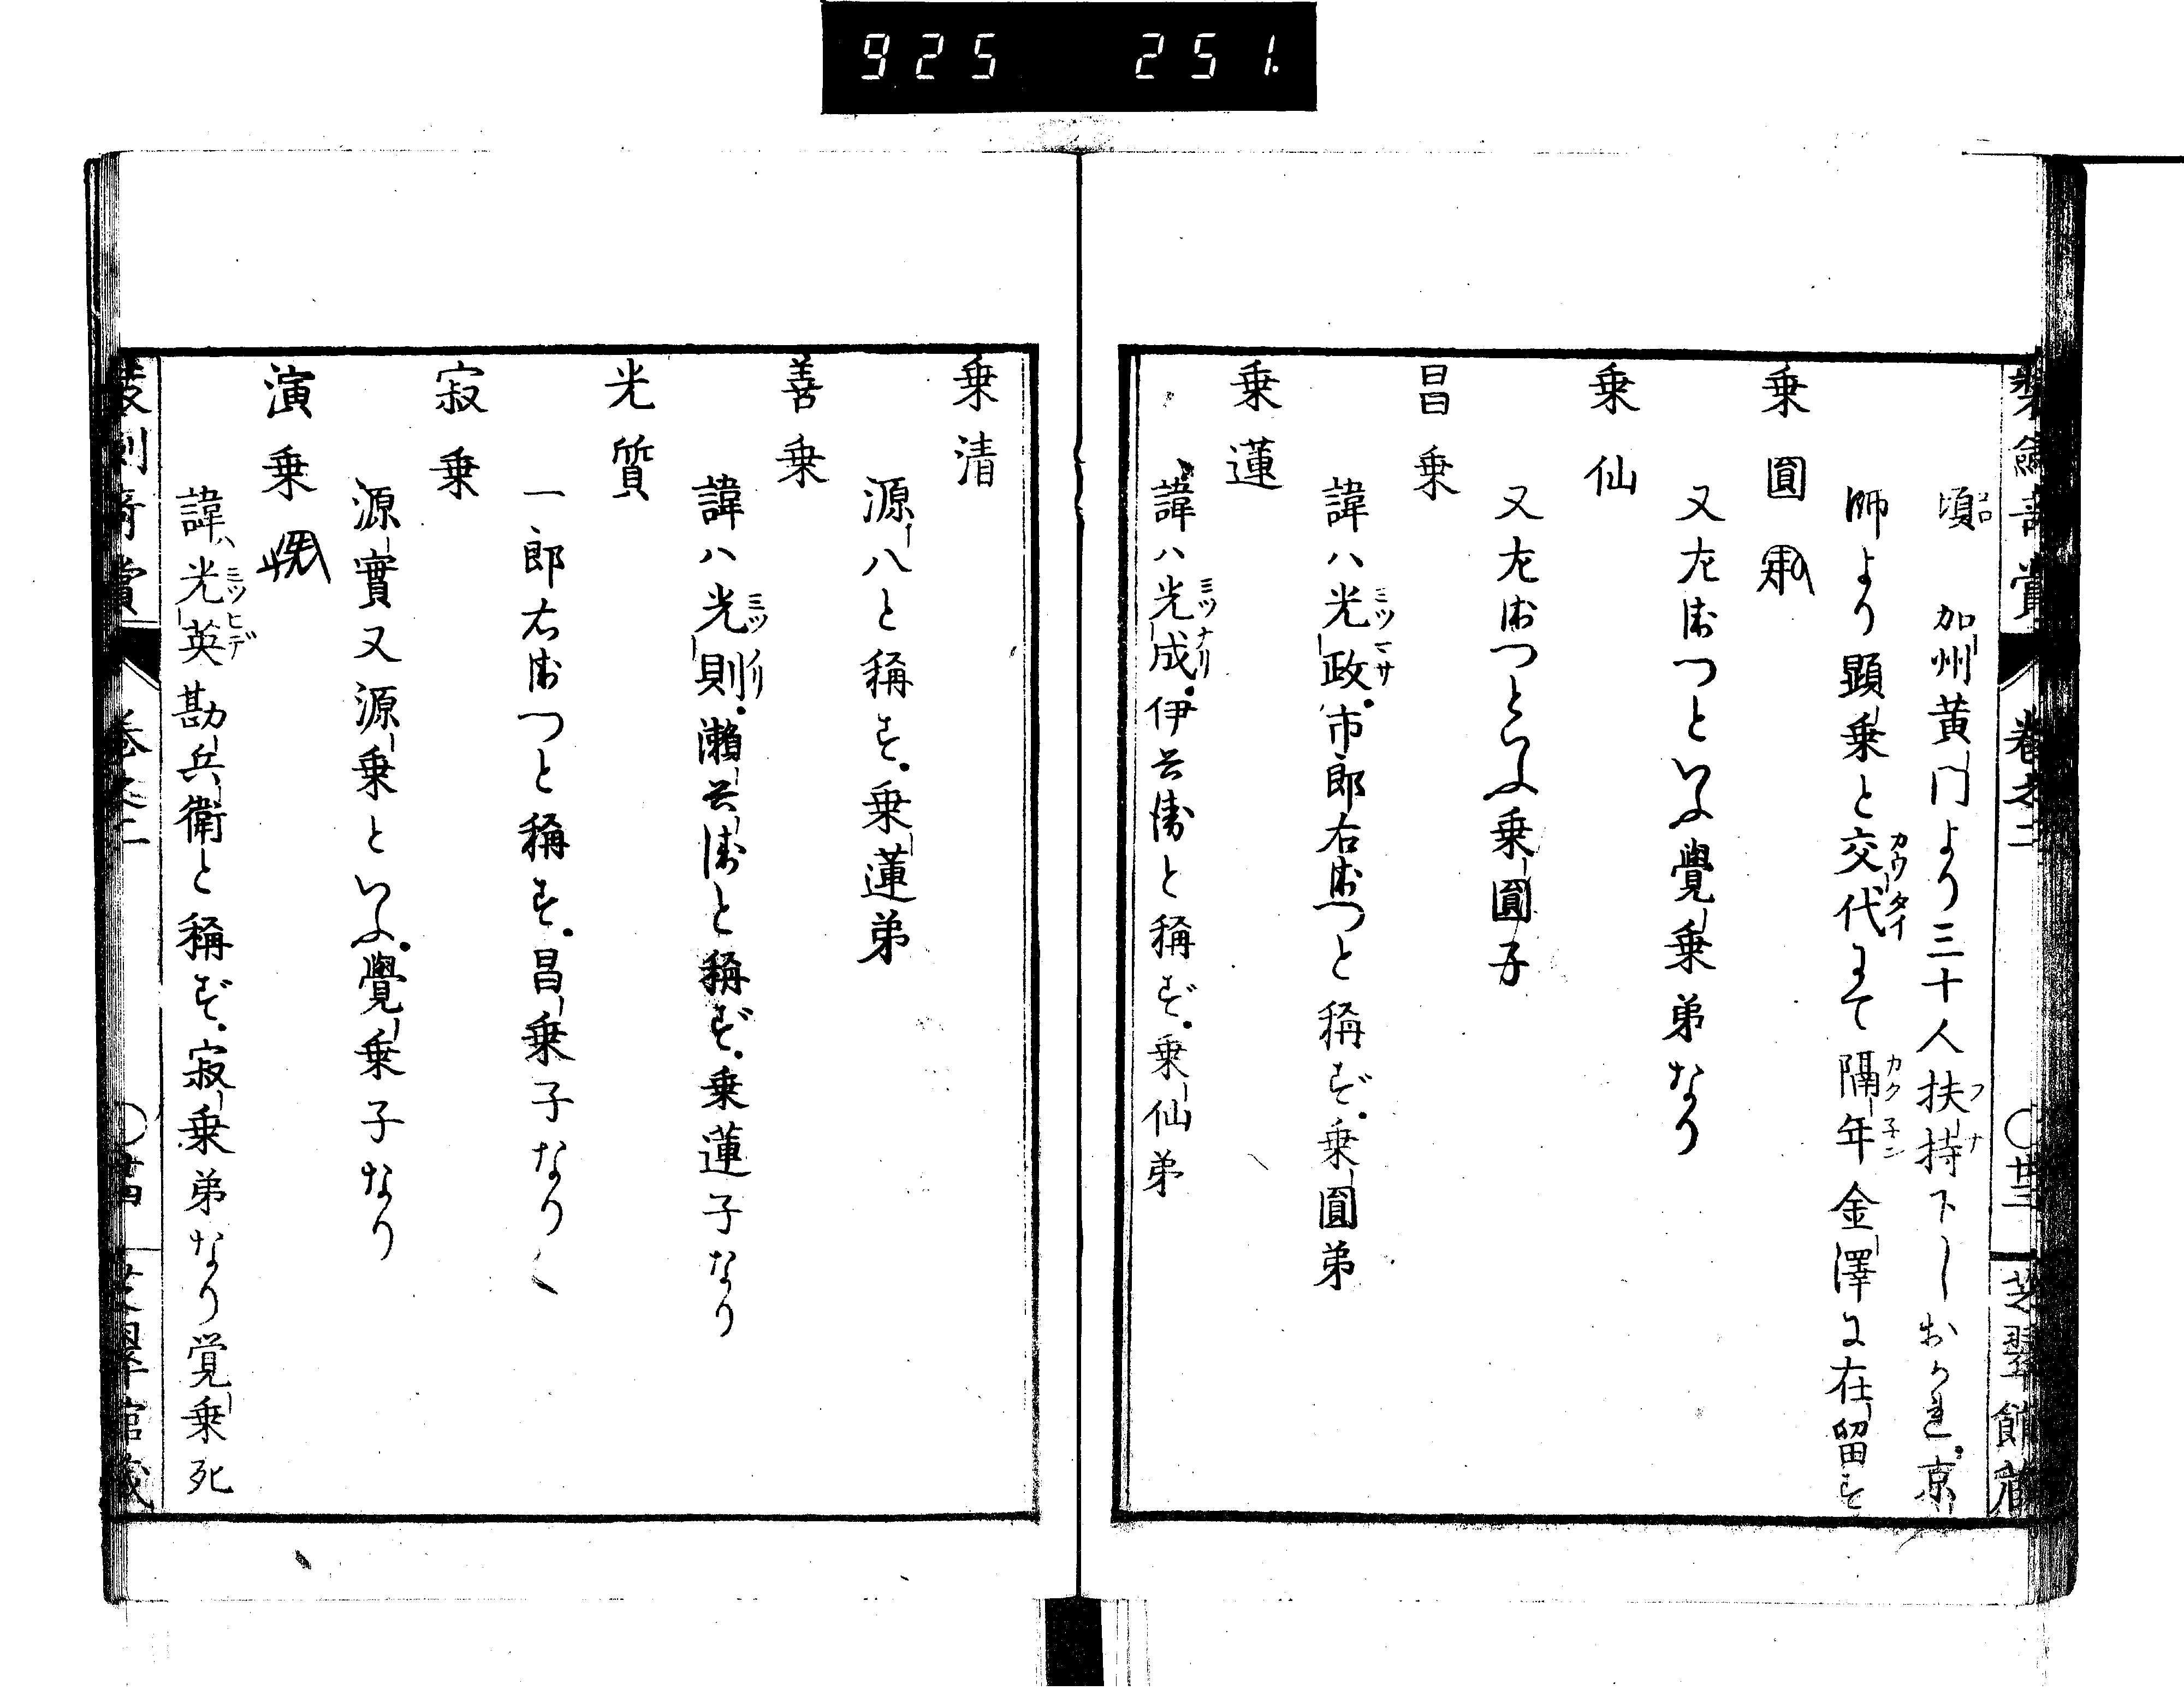 925 251.
装劔竒賞 巻之二 〇廿三 芝翠館藏
頃 加州黄門より三十人扶持下しおかれ。京
師より顕乗と交代にて隔年金澤に在留す
乗圓
又左衛門といふ覺乗弟なり
乗仙
又左衛門といふ乗圓子
昌乗
諱ハ光政。市郎右衛門と稱ず。乗圓弟
乗蓮
諱ハ光成。伊兵衛と稱ず。乗仙弟
乗清
源八と稱す。乗蓮弟
善乗
諱ハ光則。瀬兵衛と稱ず。乗蓮子なり
光質
一郎右衛門と稱す。昌乗子なり
寂乗
源實又源乗といふ。覺乗子なり
演乗
諱ハ光英勘兵衛と稱ず。寂乗弟なり覚乗死
装劔竒賞 巻之二 〇廿四 芝翠館藏